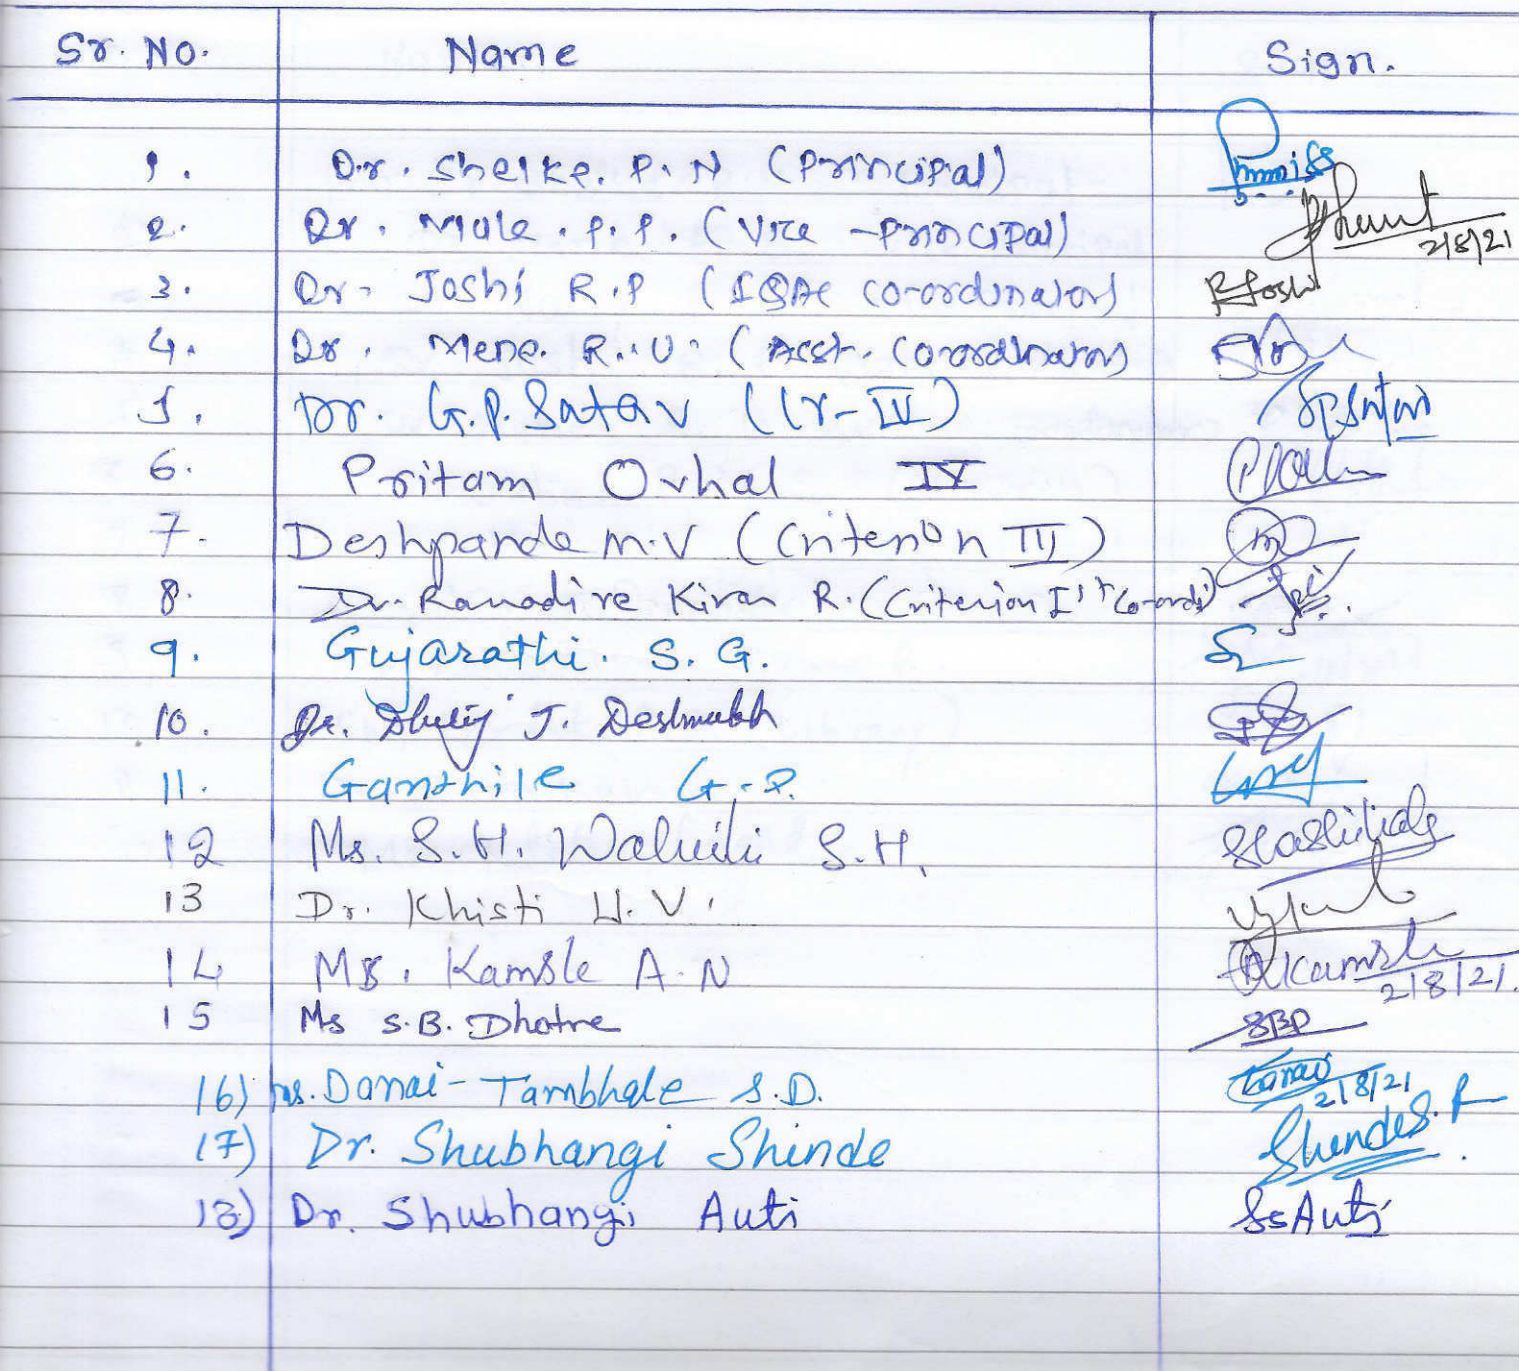 Sr. No. Name Sign.
1. Dr. Shelke. P. N (Principal)
2. Dr. Mule. P. P. (Vice - Principal) 2/8/21
3. Dr. Joshi R.P (IQAC Co-ordinator) RJoshi
4. Dr. Mene. R. U. (Asst. Co-ordinator)
5. Dr. G.P. Satav (Cr-IV)
6. Pritam Ovhal IV
7. Deshpande M.V (Criterion III)
8. Dr. Ranadive Kiran R. (Criterion Ist Co-ordi)
9. Gujarathi. S. G.
10. Dr. J. Deshmukh
11. Ganthile G. P.
12 Ms. S.H. S.H.
13 Dr. Khisti V.
14 Ms. Kamble A. N Akamble 2/8/21.
15 Ms S.B. Dhotre SBD
16) Ms. Danai - Tambhale S.D. 2/8/21
17) Dr. Shubhangi Shinde Shinde S. R.
18) Dr. Shubhangi Auti SsAuti